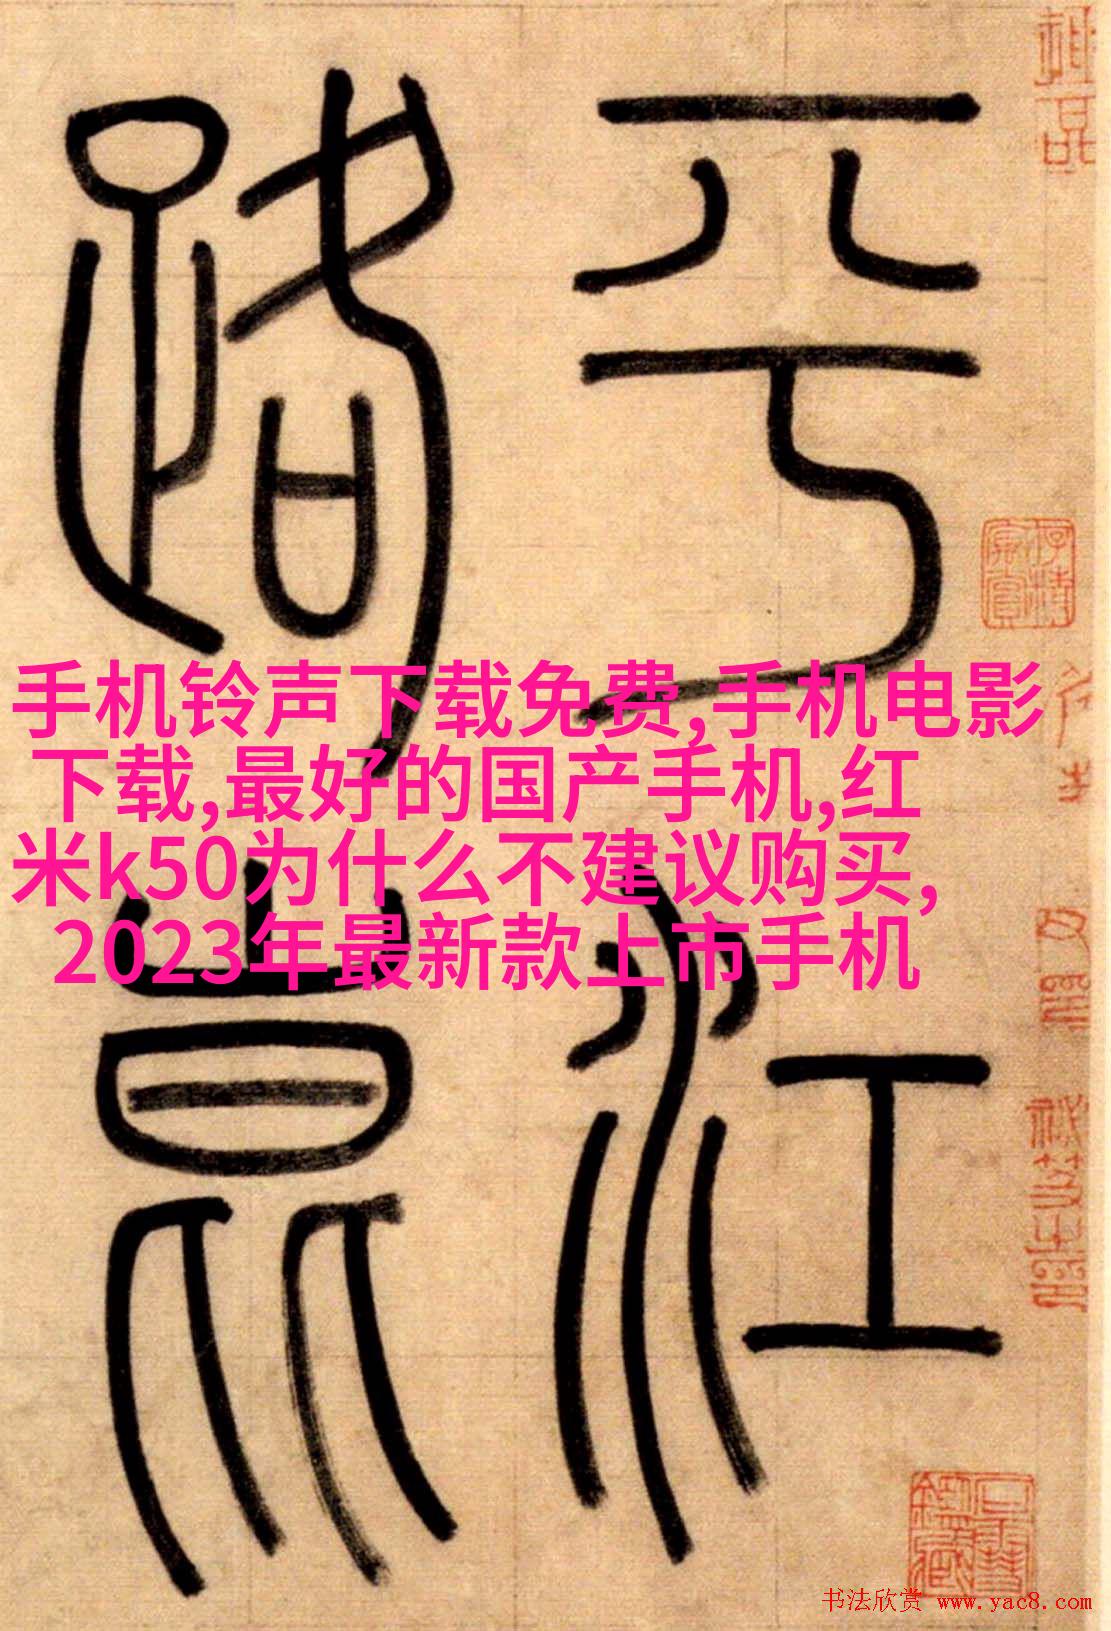 平江
路
手机铃声下载免费,手机电影
下载,最好的国产手机,红
米k50为什么不建议购买,
2023年最新款上市手机
书法欣赏 www.yac8.com